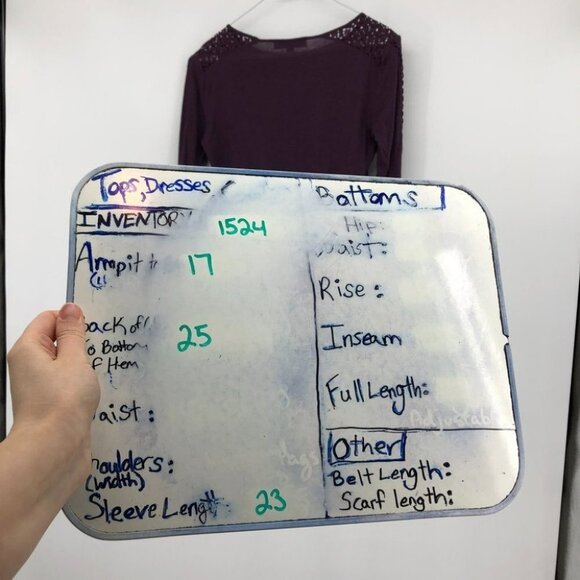 Tops, Dresses
INVENTORY 1524
Armpit 17
Back of
To Bottom 25
of Hem
Waist:
Shoulders:
(width)
Sleeve Length 23
Bottoms
Hip:
Waist:
Rise:
Inseam
Full Length:
Adjustabl
Other
Belt Length:
Scarf length: